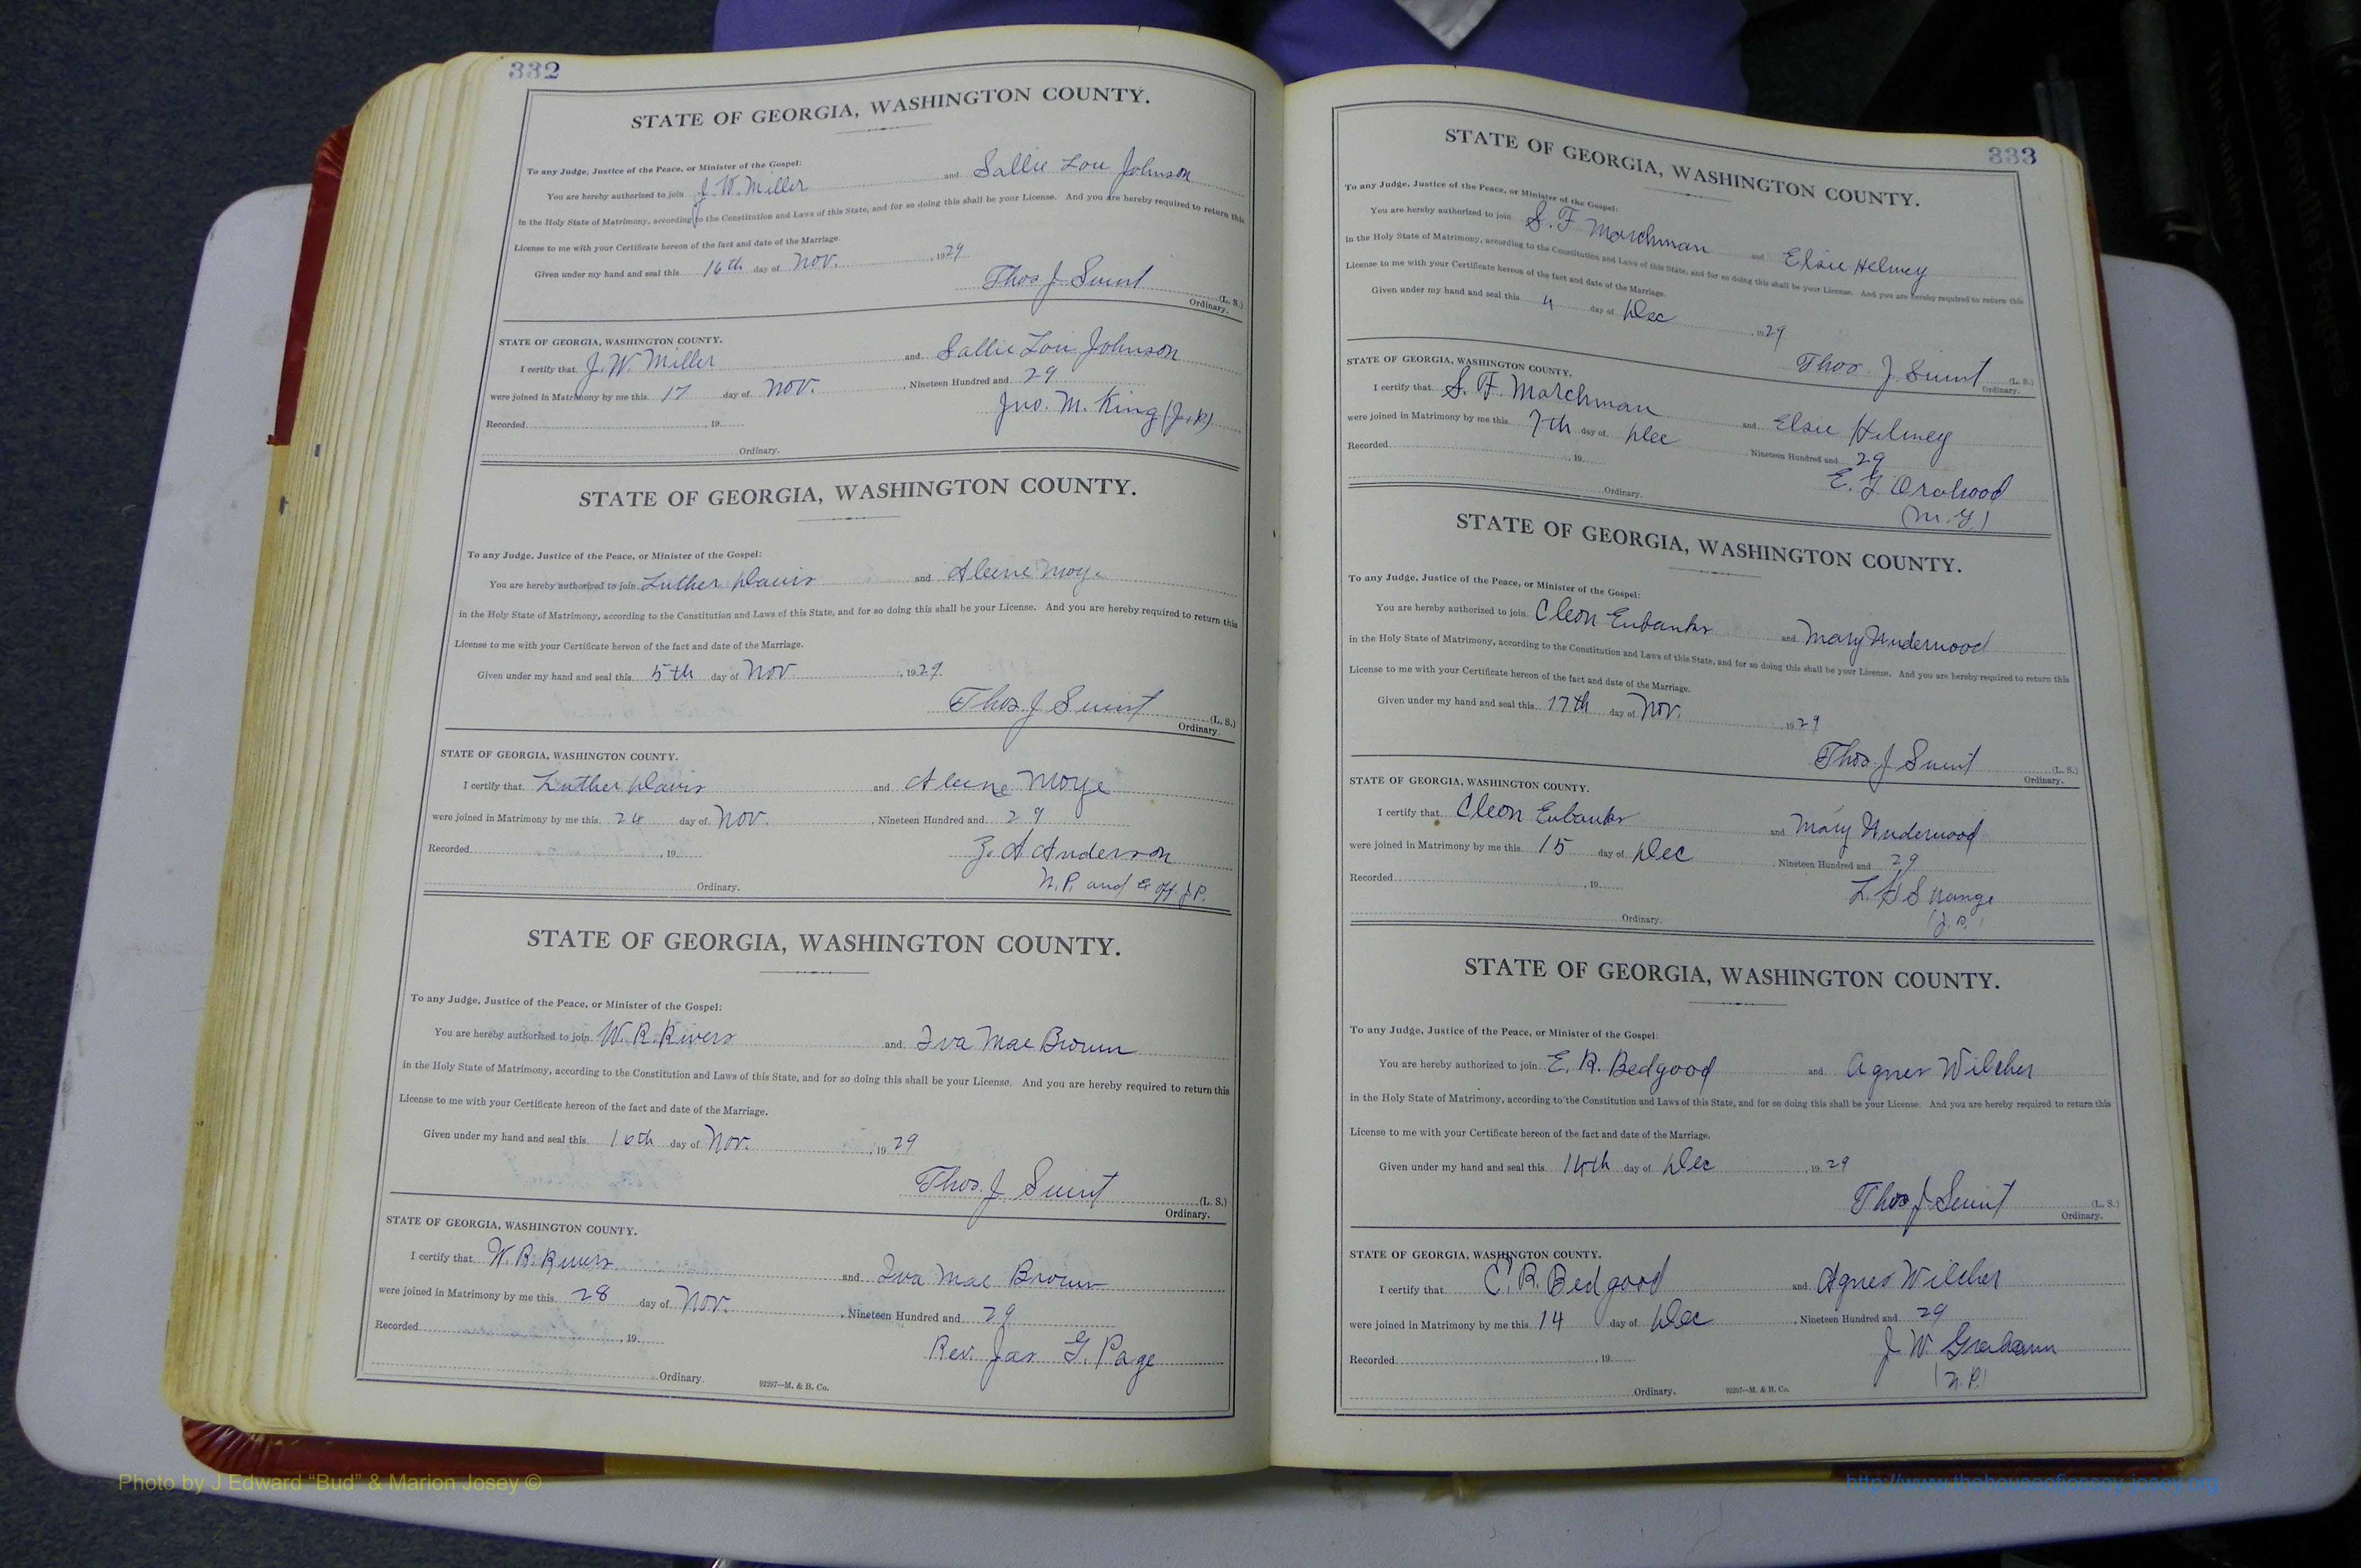 332
STATE OF GEORGIA, WASHINGTON COUNTY.
To any Judge, Justice of the Peace, or Minister of the Gospel:
You are hereby authorized to join J. W. Miller and Sallie Lou Johnson
in the Holy State of Matrimony, according to the Constitution and Laws of this State, and for so doing this shall be your License. And you are hereby required to return this
License to me with your Certificate hereon of the fact and date of the Marriage.
Given under my hand and seal this 16th day of Nov. , 1929
Thos J. Swint (L. S.)
Ordinary.
STATE OF GEORGIA, WASHINGTON COUNTY.
I certify that J. W. Miller and Sallie Lou Johnson
were joined in Matrimony by me this 17 day of Nov. , Nineteen Hundred and 29
Recorded , 19 Jno. M. King
Ordinary.
STATE OF GEORGIA, WASHINGTON COUNTY.
To any Judge, Justice of the Peace, or Minister of the Gospel:
You are hereby authorized to join Luther Davis and Aleene Moye
in the Holy State of Matrimony, according to the Constitution and Laws of this State, and for so doing this shall be your License. And you are hereby required to return this
License to me with your Certificate hereon of the fact and date of the Marriage.
Given under my hand and seal this 5th day of Nov. , 1929.
Thos. J Swint (L. S.)
Ordinary.
STATE OF GEORGIA, WASHINGTON COUNTY.
I certify that Luther Davis and Aleene Moye
were joined in Matrimony by me this 24 day of Nov. , Nineteen Hundred and 29
Recorded , 19 Z. A Anderson
Ordinary. N. P. and Ex Off. J. P.
STATE OF GEORGIA, WASHINGTON COUNTY.
To any Judge, Justice of the Peace, or Minister of the Gospel:
You are hereby authorized to join W. R. Rivers and Iva Mae Brown
in the Holy State of Matrimony, according to the Constitution and Laws of this State, and for so doing this shall be your License. And you are hereby required to return this
License to me with your Certificate hereon of the fact and date of the Marriage.
Given under my hand and seal this 16th day of Nov. , 1929
Thos. J. Swint (L. S.)
Ordinary.
STATE OF GEORGIA, WASHINGTON COUNTY.
I certify that W. R. Rivers and Iva Mae Brown
were joined in Matrimony by me this 28 day of Nov. , Nineteen Hundred and 29
Recorded , 19 Rev. Jas G. Page
Ordinary. 92297—M. & B. Co.
333
STATE OF GEORGIA, WASHINGTON COUNTY.
To any Judge, Justice of the Peace, or Minister of the Gospel:
You are hereby authorized to join S. F Marchman and Elsie Helmey
in the Holy State of Matrimony, according to the Constitution and Laws of this State, and for so doing this shall be your License. And you are hereby required to return this
License to me with your Certificate hereon of the fact and date of the Marriage.
Given under my hand and seal this 4 day of Dec , 1929
Thos. J. Swint (L. S.)
Ordinary.
STATE OF GEORGIA, WASHINGTON COUNTY.
I certify that S. F. Marchman and Elsie Helmey
were joined in Matrimony by me this 7th day of Dec Nineteen Hundred and 29
Recorded , 19 E. G.
Ordinary. (M. G)
STATE OF GEORGIA, WASHINGTON COUNTY.
To any Judge, Justice of the Peace, or Minister of the Gospel:
You are hereby authorized to join Cleon Eubanks and Mary Underwood
in the Holy State of Matrimony, according to the Constitution and Laws of this State, and for so doing this shall be your License. And you are hereby required to return this
License to me with your Certificate hereon of the fact and date of the Marriage.
Given under my hand and seal this 17th day of Nov. , 1929
Thos. J Swint (L. S.)
Ordinary.
STATE OF GEORGIA, WASHINGTON COUNTY.
I certify that Cleon Eubanks and Mary Underwood
were joined in Matrimony by me this 15 day of Dec , Nineteen Hundred and 29
Recorded , 19 L. H Strange
Ordinary. (J. P.)
STATE OF GEORGIA, WASHINGTON COUNTY.
To any Judge, Justice of the Peace, or Minister of the Gospel:
You are hereby authorized to join E. R. Bedgood and Agnes Wilcher
in the Holy State of Matrimony, according to the Constitution and Laws of this State, and for so doing this shall be your License. And you are hereby required to return this
License to me with your Certificate hereon of the fact and date of the Marriage.
Given under my hand and seal this 14th day of Dec , 1929
Thos J. Swint (L. S.)
Ordinary.
STATE OF GEORGIA, WASHINGTON COUNTY.
I certify that E. R. Bedgood and Agnes Wilcher
were joined in Matrimony by me this 14 day of Dec , Nineteen Hundred and 29
Recorded , 19 J W. Graham
Ordinary. 92297—M. & B. Co. (N. P.)
Photo by J Edward “Bud” & Marion Josey ©
http://www.thehouseofjossey-josey.org